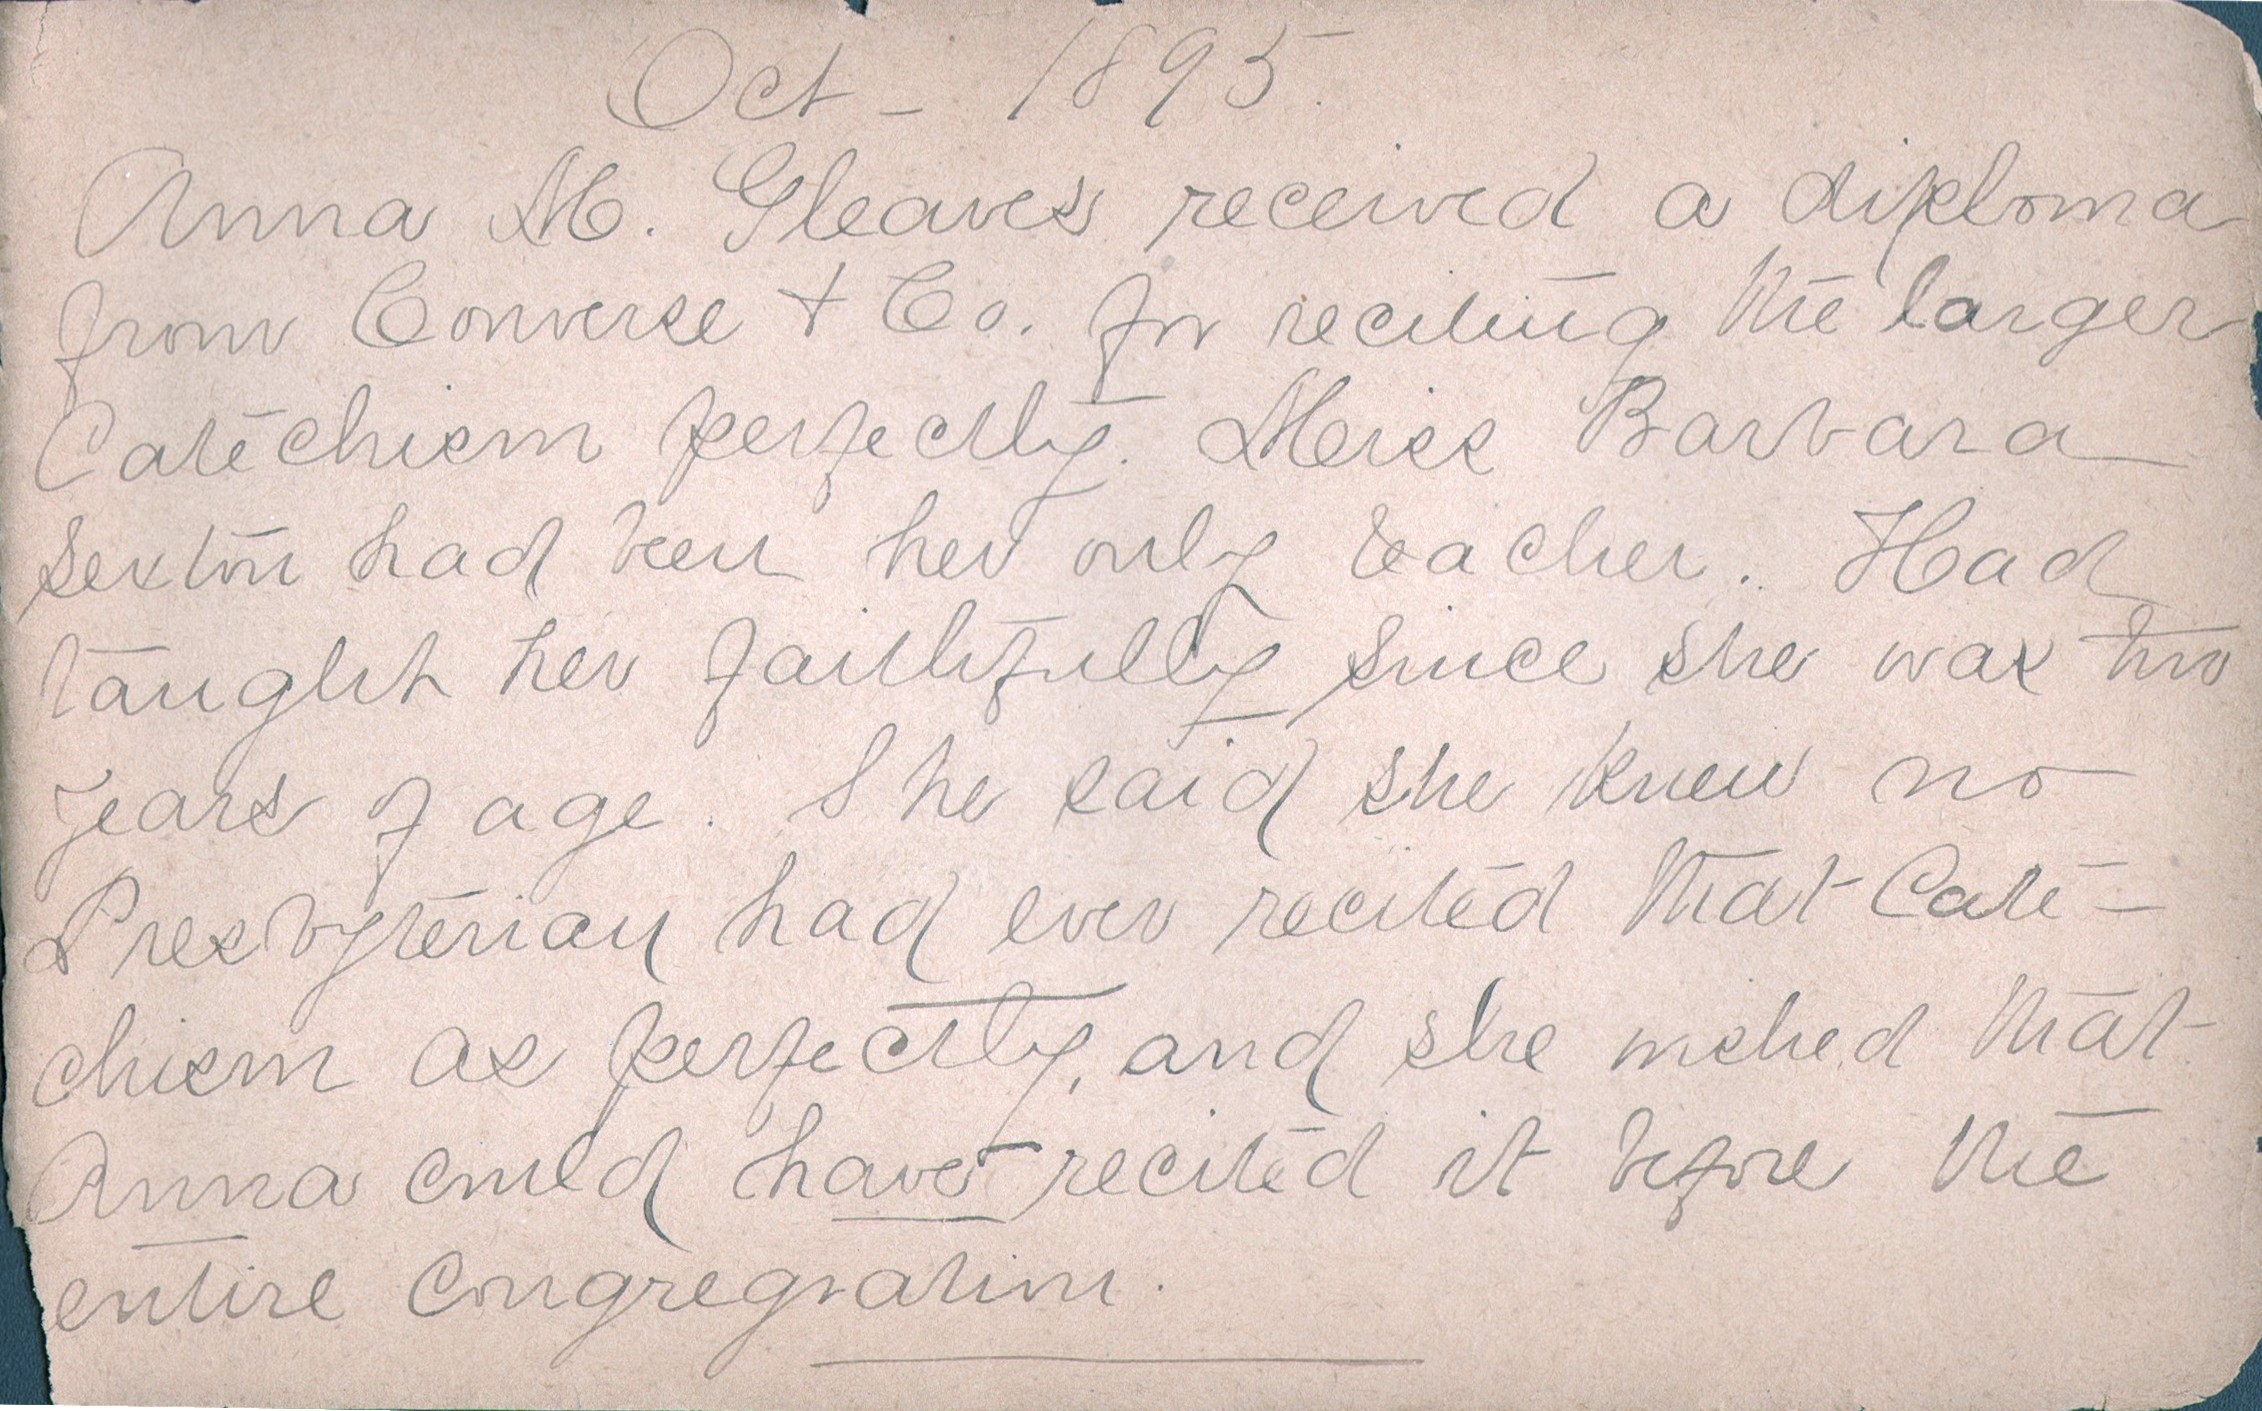 Oct - 1895.
Anna M. Gleaves received a diploma
from Converse & Co. for reciting the larger
Catechism perfectly. Miss Barbara
Sexton had been her only teacher. Had
taught her faithfully since she was two
years of age. She said she knew no
Presbyterian had ever recited that Cate-
chism as perfectly, and she wished that
Anna could have recited it before the
entire congregation.